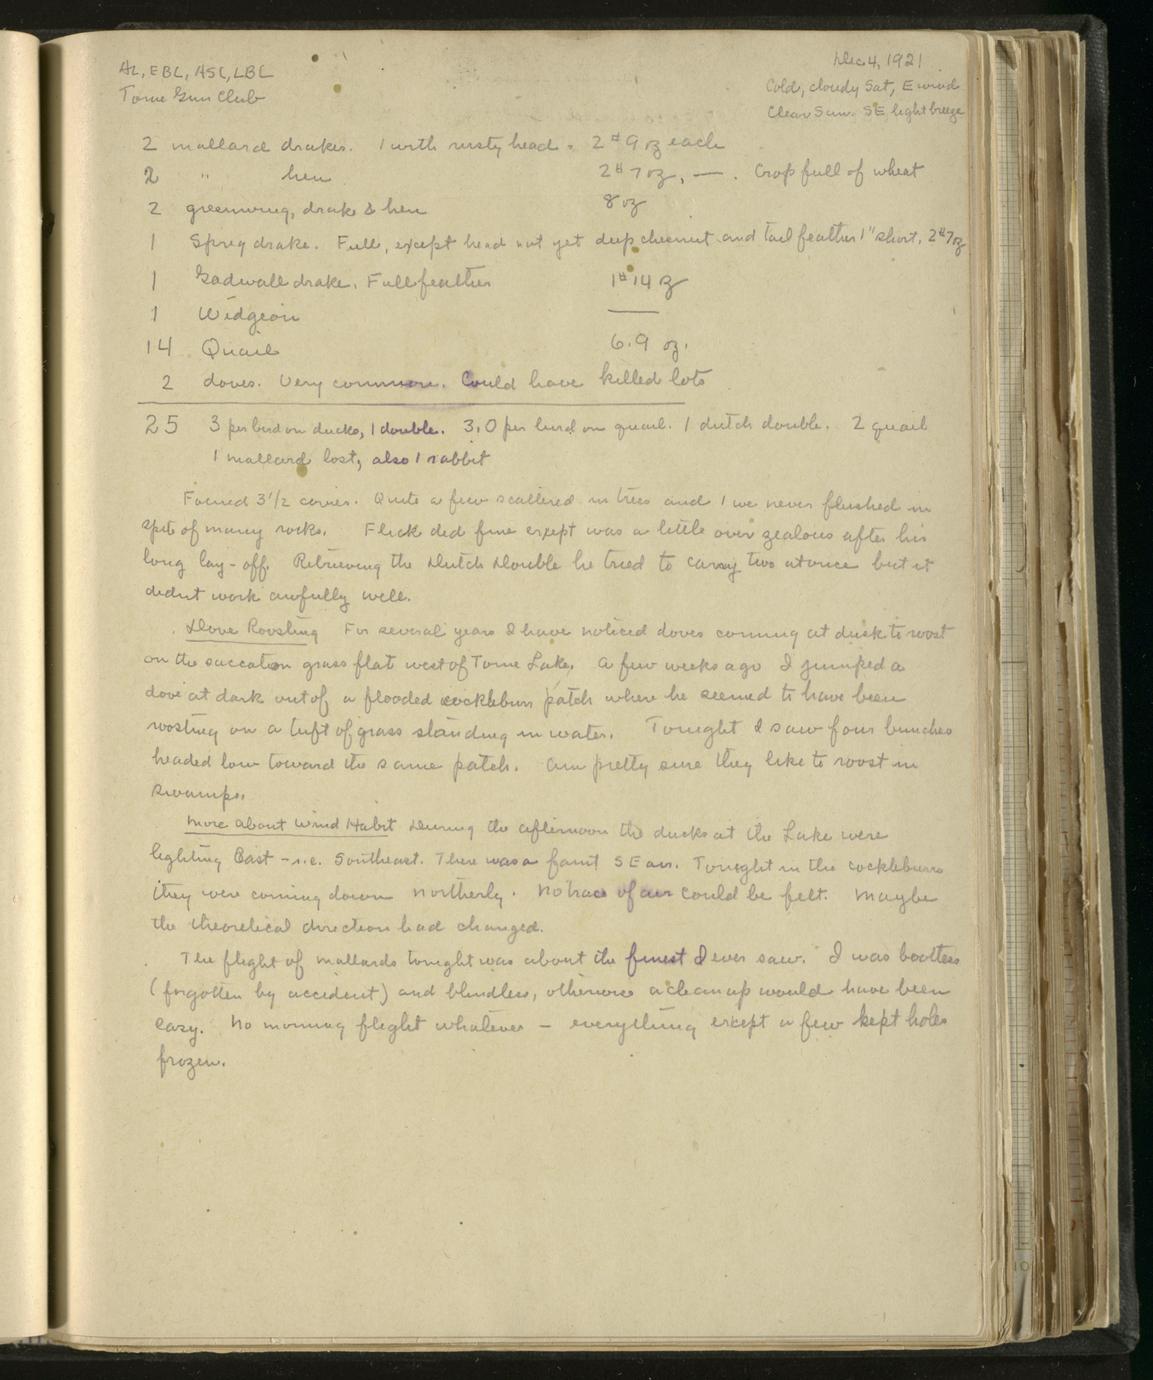 AL, EBL, ASL, LBL
Dec. 4, 1921
Tome Gun Club
Cold, cloudy Sat, E wind
Clear Sun. SE light breeze
2 mallard drakes. 1 with rusty head = 2# 9 oz each
2 " hen 2# 7 oz, — . Crop full of wheat
2 greenwing, drake & hen 8 oz
1 Sprig drake. Full, except head not yet deep chesnut and tail feather 1" short, 2# 7 oz
1 Gadwall drake. Full feather 1# 14 oz
1 Widgeon —
14 Quail 6.9 oz.
2 doves. Very common. Could have killed lots
25 3 per bird on ducks, 1 double. 3.0 per bird on quail. 1 dutch double. 2 quail
1 mallard lost, also 1 rabbit
Found 3 1/2 covies. Quite a few scattered in trees and 1 we never flushed in
spite of many rocks. Flick did fine except was a little over zealous after his
long lay-off. Retrieving the Dutch Double he tried to carry two at once but it
didnt work awfully well.
Dove Roosting For several years I have noticed doves coming at dusk to roost
on the saccaton grass flat west of Tome Lake. A few weeks ago I jumped a
dove at dark out of a flooded cocklebur patch where he seemed to have been
roosting on a tuft of grass standing in water. Tonight I saw four bunches
headed low toward the same patch. Am pretty sure they like to roost in
swamps.
More about Wind Habit During the afternoon the ducks at the Lake were
lighting East - i.e. Southeast. There was a faint SE air. Tonight in the cockleburs
they were coming down northerly. No trace of air could be felt. Maybe
the theoretical direction had changed.
The flight of mallards tonight was about the finest I ever saw. I was bootless
(forgotten by accident) and blindless, otherwise a cleanup would have been
easy. No morning flight whatever - everything except a few kept holes
frozen.